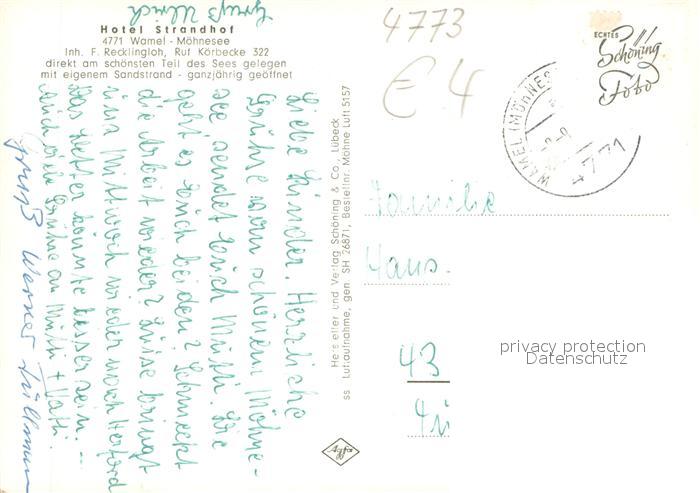 Hotel Strandhof
4771 Wamel - Möhnesee
Inh. F. Recklingloh, Ruf Körbecke 322
direkt am schönsten Teil des Sees gelegen
mit eigenem Sandstrand - ganzjährig geöffnet
Liebe Kinder. Herzliche
Grüße vom schönen Möhne-
see sendet Euch Mutti. Wie
geht es Euch beiden? Schmeckt
die Arbeit wieder? Luise bringt
uns Mittwoch wieder nach Herford
Das Wetter könnte besser sein. —
auch viele Grüße an Mutti + Vati.
Gruß Ulrich
Gruß Werner
Hersteller und Verlag Schöning & Co., Lübeck
ss Luftaufnahme, gen. SH 26871, Bestellnr. Möhne Luft 5157
4773
E 4
ECHTES
Schöning
Foto
WAMEL (MÖHNESE
4771
Familie
Hans.
43
Agfa
privacy protection
Datenschutz